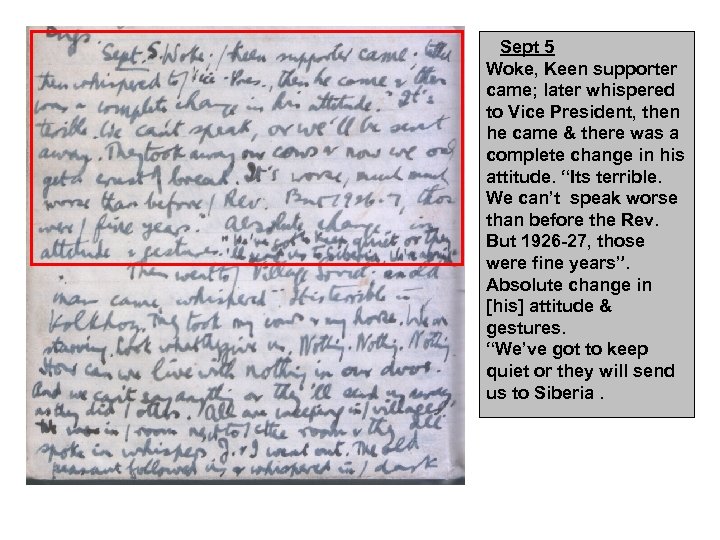 Sept. 5. Woke. / Keen supporter came.
then whispered to / Vice-Pres., then he came & there
was a complete change in his attitude. "It's
terrible. We can't speak, or we'll be sent
away. They took away our cows & now we only
get a crust / bread. It's worse, much much
worse than before / Rev. But 1926-7, those
were / fine years." Absolute change in
attitude & gestures. "We've got to keep quiet or they
'll send us to Siberia.
Then went to / Village Soviet. an old
man came, whispered "It is terrible in
Kolkhoz. They took my cows & my horse. We are
starving. Look what they give us. Nothing. Nothg. Nothing
How can we live with nothing in our dvor.
And we can't say anything or they'll send us away
as they did / others." All are weeping in / villages
We were in / room next to / cttee room & they all
spoke in whispers. J. & I went out. The old
peasant followed us & whispered in / dark
Sept 5
Woke, Keen supporter
came; later whispered
to Vice President, then
he came & there was a
complete change in his
attitude. “Its terrible.
We can’t speak worse
than before the Rev.
But 1926-27, those
were fine years”.
Absolute change in
[his] attitude &
gestures.
“We’ve got to keep
quiet or they will send
us to Siberia .